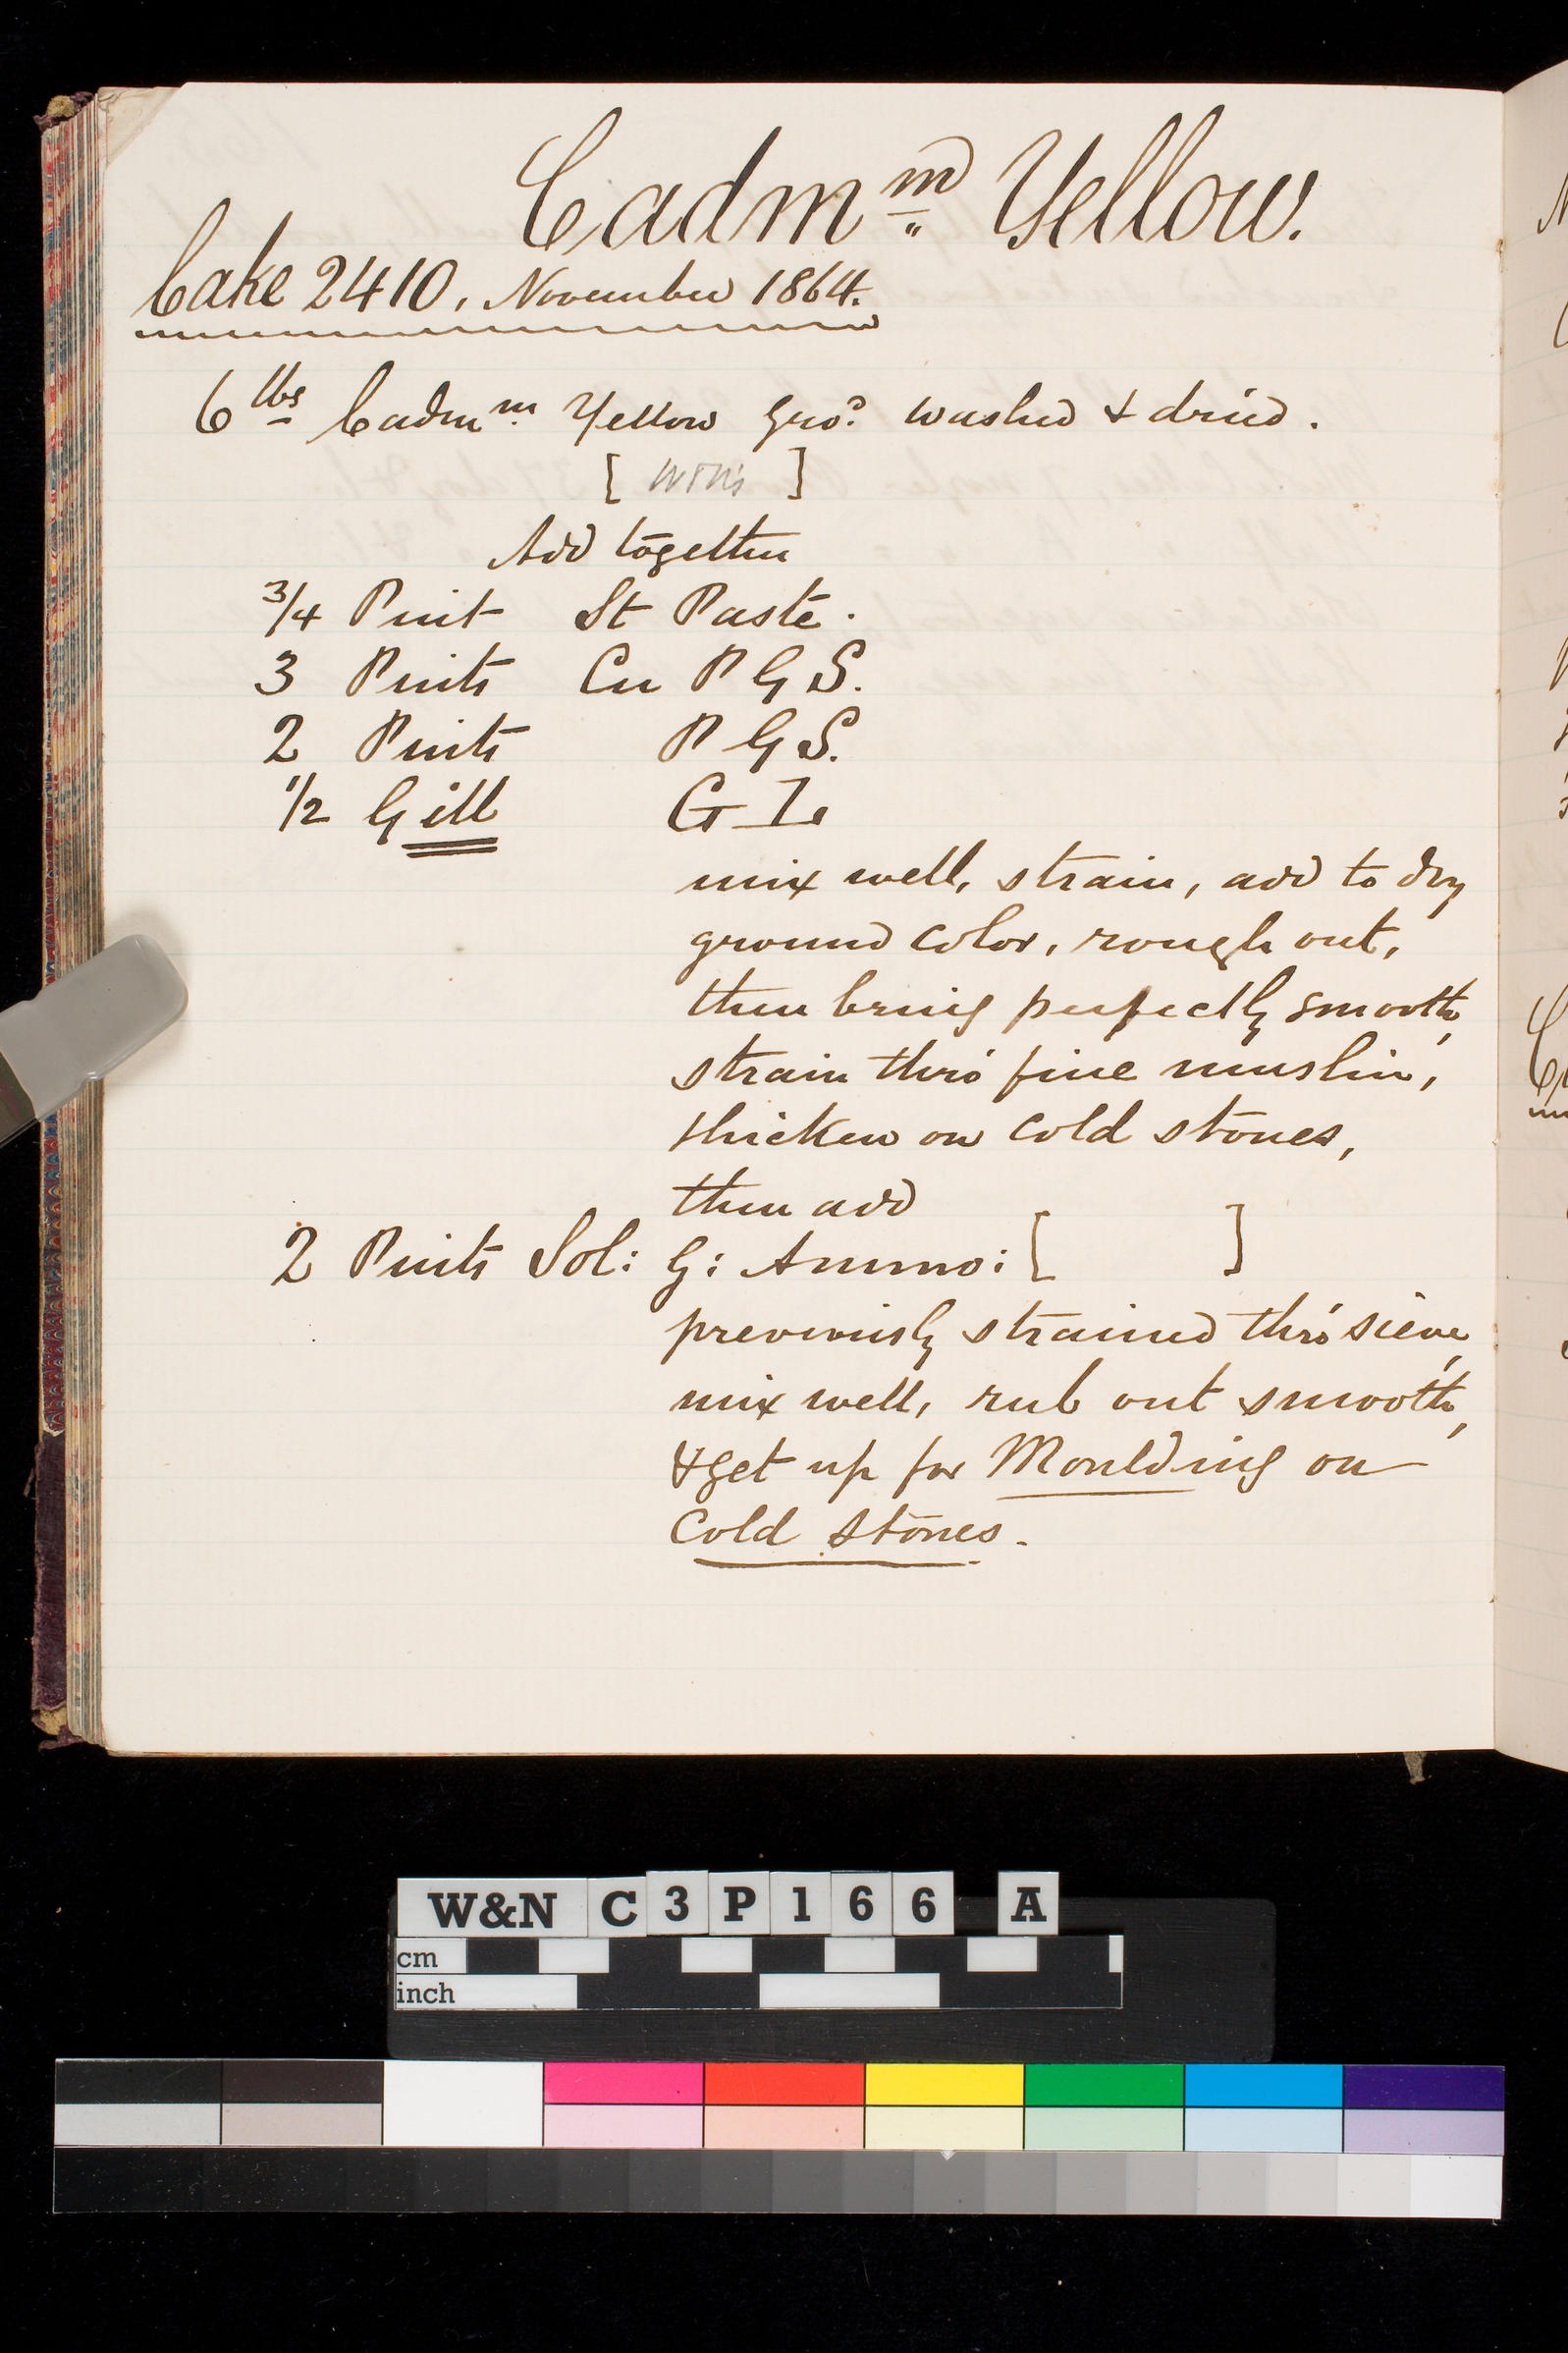 Cadmm Yellow.
Cake 2410, November 1864.
6 lbs Cadmm Yellow Grod washed & dried.
[ ]
Add together
3/4 Pint St Paste.
3 Pints Cu P G S.
2 Pints P G S.
1/2 Gill G I.
mix well, strain, add to dry
ground color, rough out,
then bring perfectly smooth,
strain thro' fine muslin,
thicken on cold stones,
then add
2 Pints Sol: G: Ammo: [ ]
previously strained thro' sieve,
mix well, rub out smooth,
& get up for Moulding on
Cold Stones.
W&N C3P166 A
cm
inch